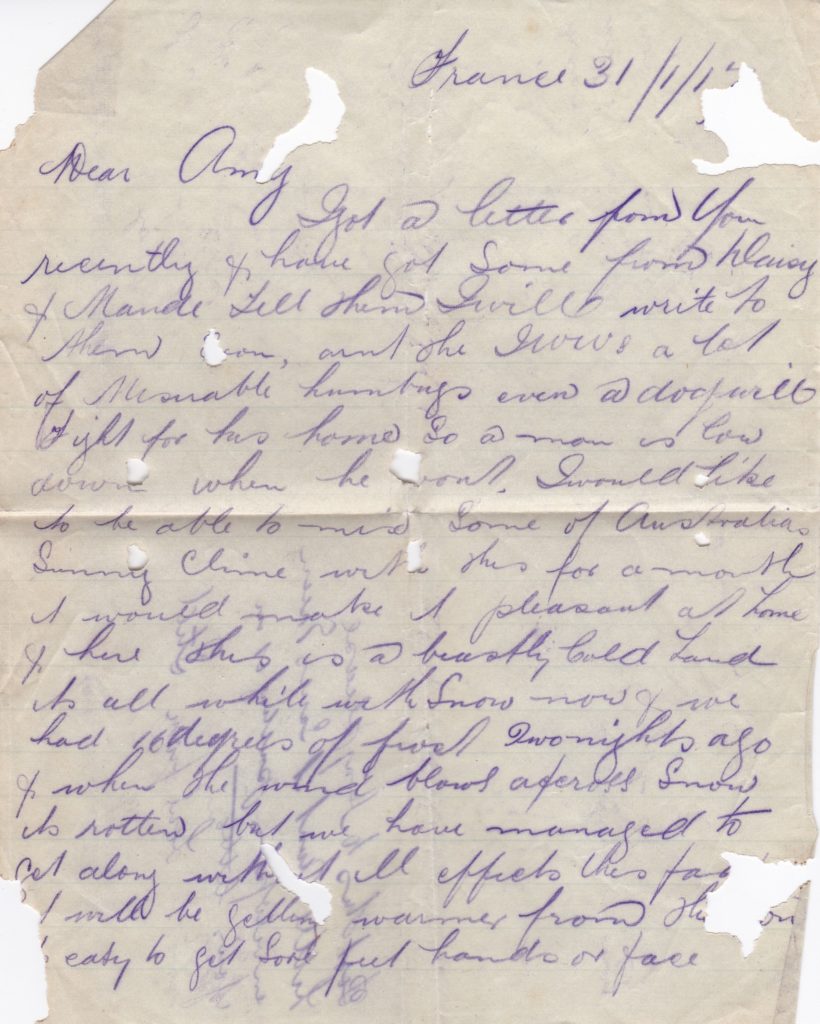 France 31/1/1
Dear Amy
I got a letter from You
recently & have got Some from Daisy
& Maude Tell them I will write to
them soon, aint the IWWs a lot
of Miserable humbugs even a dog will
Fight for his home So a man is low
down when he wont. I would like
to be able to mix Some of Australias
Sunny Clime with this for a month
it would make it pleasant at home
& here this is a beastly Cold Land
its all white with Snow now & we
had 16 degrees of frost Two nights ago
& when the wind blows across Snow
its rotten but we have managed to
get along without ill effects this fa
it will be getting warmer from the on
easy to get Sore feet hands or face